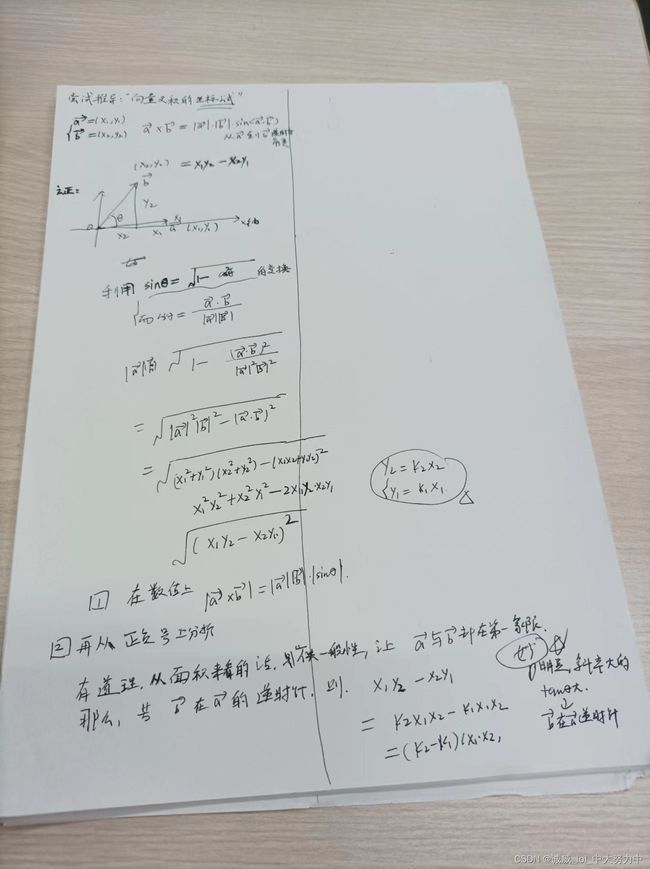 尝试推导:"向量叉积的坐标公式"
{ a⃗=(x₁,y₁)
b⃗=(x₂,y₂)
a⃗ × b⃗ = |a⃗|·|b⃗|·sin<a⃗·b⃗>
从a⃗到b⃗逆时针
= x₁y₂ - x₂y₁
(x₂,y₂)
b⃗
y₂
θ
o
x₂
x₁
a⃗
(x₁,y₁)
利用 sinθ=√1-
而 = a⃗·b⃗ / |a⃗||b⃗|
|a⃗||b⃗| √1 - (a⃗·b⃗)² / |a⃗|²|b⃗|²
= √|a⃗|²|b⃗|² - |a⃗·b⃗|²
= √(x₁²+y₁²)(x₂²+y₂²) - (x₁x₂+y₁y₂)²
x₁²y₂²+x₂²y₁²-2x₁y₂·x₂y₁
√(x₁y₂ - x₂y₁)²
{ y₂=k₂x₂
y₁=k₁x₁
1 在数值上 |a⃗×b⃗|=|a⃗||b⃗|·|sinθ|.
2 再从 正负号上分析
有道理,从面积来看的话,不失一般性,让 a⃗与b⃗都在第一象限.
那么,若 b⃗ 在a⃗的逆时针,则. x₁y₂ - x₂y₁
= k₂x₁x₂ - k₁x₁x₂
=(k₂-k₁)(x₁·x₂)
明显,斜率大的
tanθ大.
↓
b⃗在a⃗逆时针
CSDN @诚威_lol_中大努力中